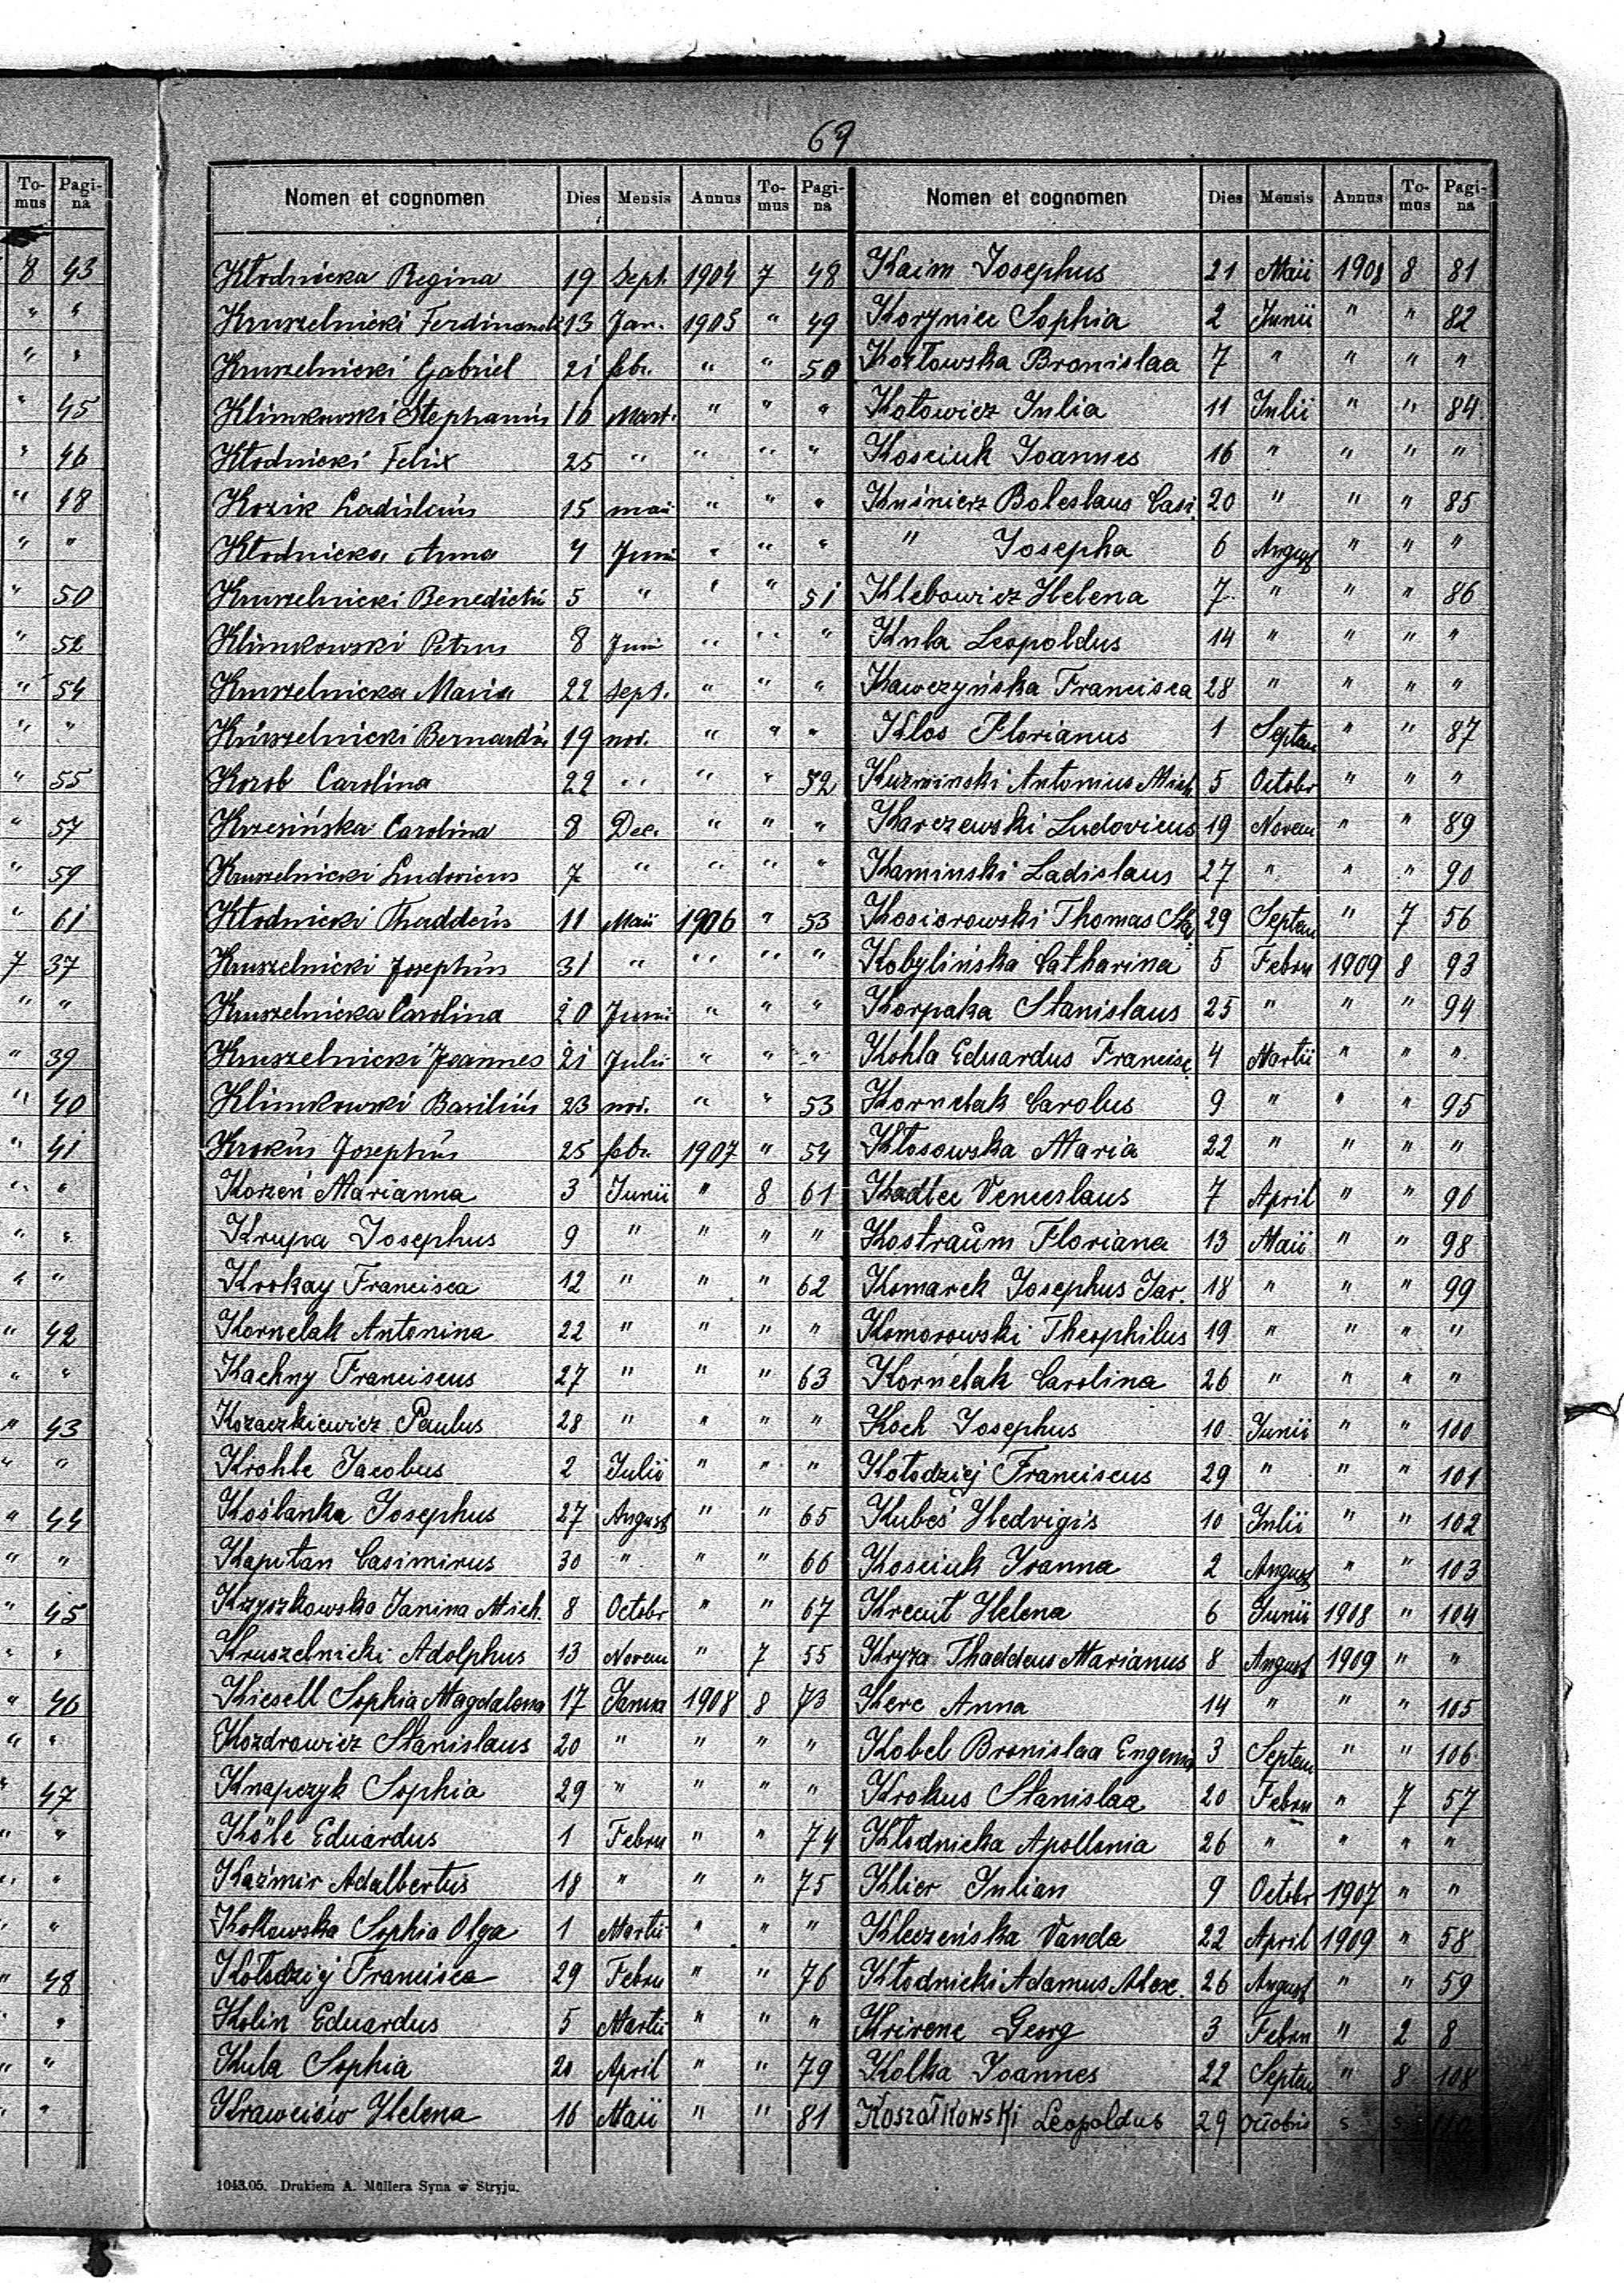 69
To-mus Pagi-na
8 43
" "
" "
" 45
" 46
" 48
" "
" 50
" 52
" 54
" "
" 55
" 57
" 59
" 61
7 37
" "
" 39
" 40
" 41
" "
" "
" "
" 42
" "
" 43
" "
" 44
" "
" 45
" "
" 46
" "
" 47
" "
" "
" "
" 48
" "
" "
" "
Nomen et cognomen Dies Mensis Annus To-mus Pagi-na
Kłodnicka Regina 19 Sept. 1904 7 48
Kruszelnicki Ferdinandus 13 Jan. 1905 " 49
Kruszelnicki Gabriel 21 febr. " " 50
Klimkowski Stephanus 16 Mart. " " "
Kłodnicki Felix 25 " " " "
Kozik Ladislaus 15 maii " " "
Kłodnicka Anna 4 Junii " " "
Kruszelnicki Benedictus 5 " " " 51
Klimkowski Petrus 8 Junii " " "
Kruszelnicka Maria 22 Sept. " " "
Kruszelnicki Bernardus 19 nov. " " "
Kozob Carolina 22 " " " 52
Krzesińska Carolina 8 Dec. " " "
Kruszelnicki Ludovicus 7 " " " "
Kłodnicki Thaddeus 11 Maii 1906 " 53
Kruszelnicki Josephus 31 " " " "
Kruszelnicka Carolina 20 Junii " " "
Kruszelnicki Joannes 21 Julii " " "
Klimkowski Basilius 23 nov. " " 53
Krokus Josephus 25 febr. 1907 " 54
Korzeń Marianna 3 Junii " 8 61
Krupa Josephus 9 " " " "
Krokay Francisca 12 " " " 62
Kornelak Antonina 22 " " " "
Kachny Franciscus 27 " " " 63
Kozaczkiewicz Paulus 28 " " " "
Krohle Jacobus 2 Julii " " "
Koślanka Josephus 27 August " " 65
Kapitan Casimirus 30 " " " 66
Krzyszkowska Janina Mich. 8 Octobr " " 67
Kruszelnicki Adolphus 13 Novem " 7 55
Kiesell Sophia Magdalena 17 Janua 1908 8 73
Kozdrowicz Stanislaus 20 " " " "
Knapczyk Sophia 29 " " " "
Köle Eduardus 1 Febru " " 74
Kaźmir Adalbertus 18 " " " 75
Kotłowska Sophia Olga 1 Martii " " "
Kołodziej Francisca 29 Febru " " 76
Kolin Eduardus 5 Martii " " "
Kula Sophia 20 April " " 79
Krawców Helena 16 Maii " " 81
Nomen et cognomen Dies Mensis Annus To-mus Pagi-na
Kaim Josephus 21 Maii 1908 8 81
Koryniec Sophia 2 Junii " " 82
Kozłowska Bronislaa 7 " " " "
Kotowicz Julia 11 Julii " " 84
Kościuk Joannes 16 " " " "
Kuśnierz Boleslaus Casi. 20 " " " 85
" Josepha 6 August " " "
Klebowicz Helena 7 " " " 86
Kula Leopoldus 14 " " " "
Kawczyńska Francisca 28 " " " "
Klos Florianus 1 Septem " " 87
Kuzminski Antonius Mich. 5 Octobr " " "
Karczewski Ludovicus 19 Novem " " 89
Kaminski Ladislaus 27 " " " 90
Kosiorowski Thomas Sta. 29 Septem " 7 56
Kobylińska Catharina 5 Febru 1909 8 93
Korpaka Stanislaus 25 " " " 94
Kohla Eduardus Francisc. 4 Martii " " "
Kornelak Carolus 9 " " " 95
Kłosowska Maria 22 " " " "
Kadlec Venceslaus 7 April " " 96
Kostraum Floriana 13 Maii " " 98
Komarek Josephus Jar. 18 " " " 99
Komorowski Theophilus 19 " " " "
Kornelak Carolina 26 " " " "
Koch Josephus 10 Junii " " 100
Kołodziej Franciscus 29 " " " 101
Kubeś Hedvigis 10 Julii " " 102
Kosciuk Joanna 2 August " " 103
Krecut Helena 6 Junii 1908 " 104
Kryza Thaddeus Marianus 8 August 1909 " "
Kerc Anna 14 " " " 105
Kobel Bronislaa Eugenia 3 Septem " " 106
Krokus Stanislaa 20 Febru " 7 57
Kłodnicka Apollonia 26 " " " "
Klier Julian 9 Octobr 1907 " "
Kleczeńska Vanda 22 April 1909 " 58
Kłodnicki Adamus Alex. 26 August " " 59
Krirenc Georg 3 Febru " 2 8
Kolka Joannes 22 Septem " 8 108
Koszałkowski Leopoldus 29 Octobris s s 110
1043.05. Drukiem A. Müllera Syna w Stryju.